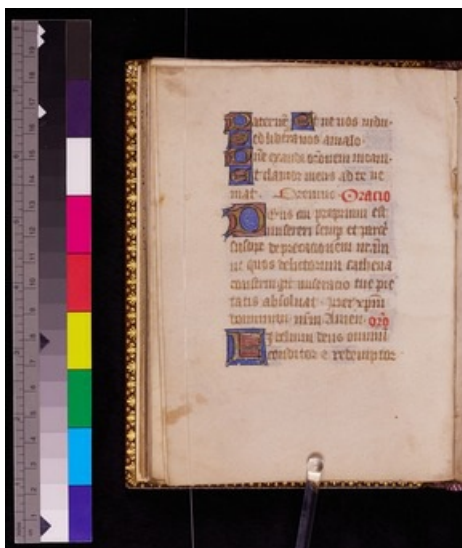 Pater nr̄ Et ne nos indu
Sed libera nos a malo
Dn̄e exaudi or̄onem meam
Et clamor meus ad te ve
niat Oremus Oracio
Deus cui proprium est
misereri semp et parce
suscipe deprecationem nr̄am
ut quos delictorum cathena
constringit miseratio tue pie
tatis absoluat per xp̄m
dominum nr̄m Amen or̄o
Fidelium deus omniu
conditor et redemptor